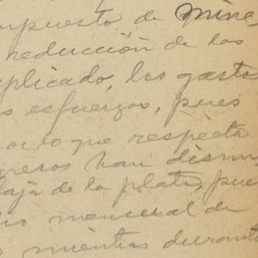 mpuesto de mine
reducción de los
plicado, los gasto
s esfuerzos, pues
or lo que respecta
gresos han dismi
aja de la plata, pue
io mensual de
s mientras durante